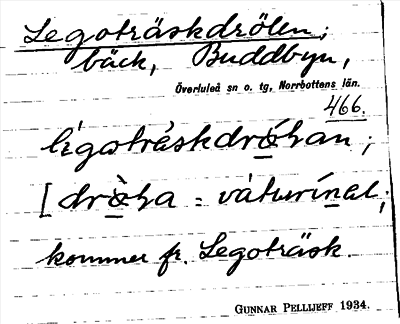 Legoträskdrölen;
bäck, Buddbyn,
Överluleå sn o. tg, Norrbottens län.
466.
legoträskdróhan;
[dròha = vàturínal;
kommer fr. Legoträsk.
GUNNAR PELLIJEFF 1934.